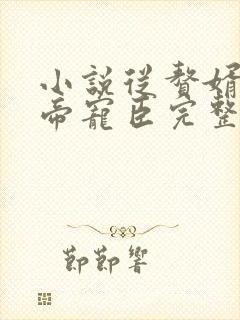 小說從贅婿
帝寵臣完整
節節響